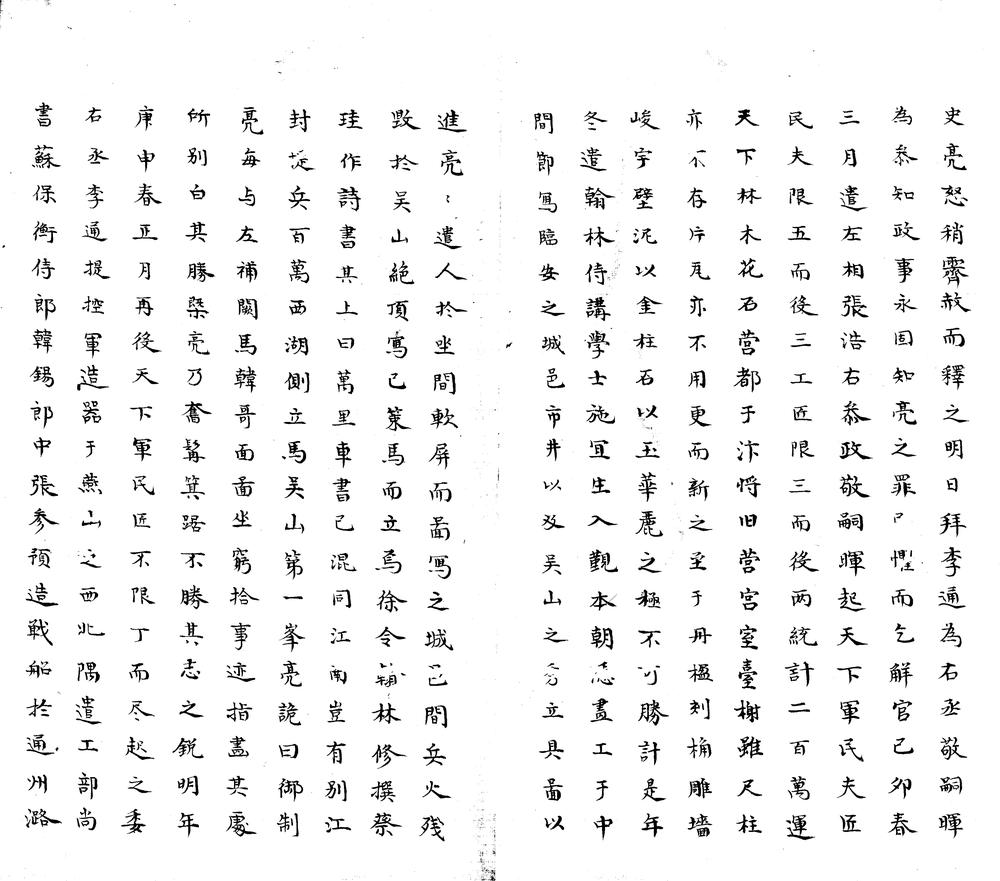 史亮怒稍霽赦而釋之明日拜李通為右丞敬嗣暉
為叅知政事永固知亮之罪已惧而乞解官已卯春
三月遣左相張浩右叅政敬嗣暉起天下軍民夫匠
民夫限五而役三工匠限三而役两統計二百萬運
天下林木花石营都于汴将旧营宫室臺榭雖尺柱
亦不存片瓦亦不用更而新之至于丹楹刻桷雕墻
峻宇壁泥以金柱石以玉華麗之極不可勝計是年
冬遣翰林侍講學士施宜生入覲本朝画工于中
間即寫臨安之城邑市井以及吴山之立具啚以
進亮〻遣人於坐間軟屏而啚寫之城邑間兵火残
毀於吴山絶頂寫己策馬而立焉徐令翰林修撰蔡
珪作詩書其上曰萬里車書已混同江南豈有别江
封提兵百萬西湖側立馬吴山第一峯亮詭曰御制
亮每与左補闕馬韓哥面啚坐窮拾事迹指畫其處
所别白其勝槩亮乃奮髯箕踞不勝其志之鋭明年
庚申春正月再役天下軍民匠不限丁而尽起之委
右丞李通提控軍造器于燕山之西北隅遣工部尚
書蘇保衡侍郎韓錫郎中張參預造戦船於通州潞